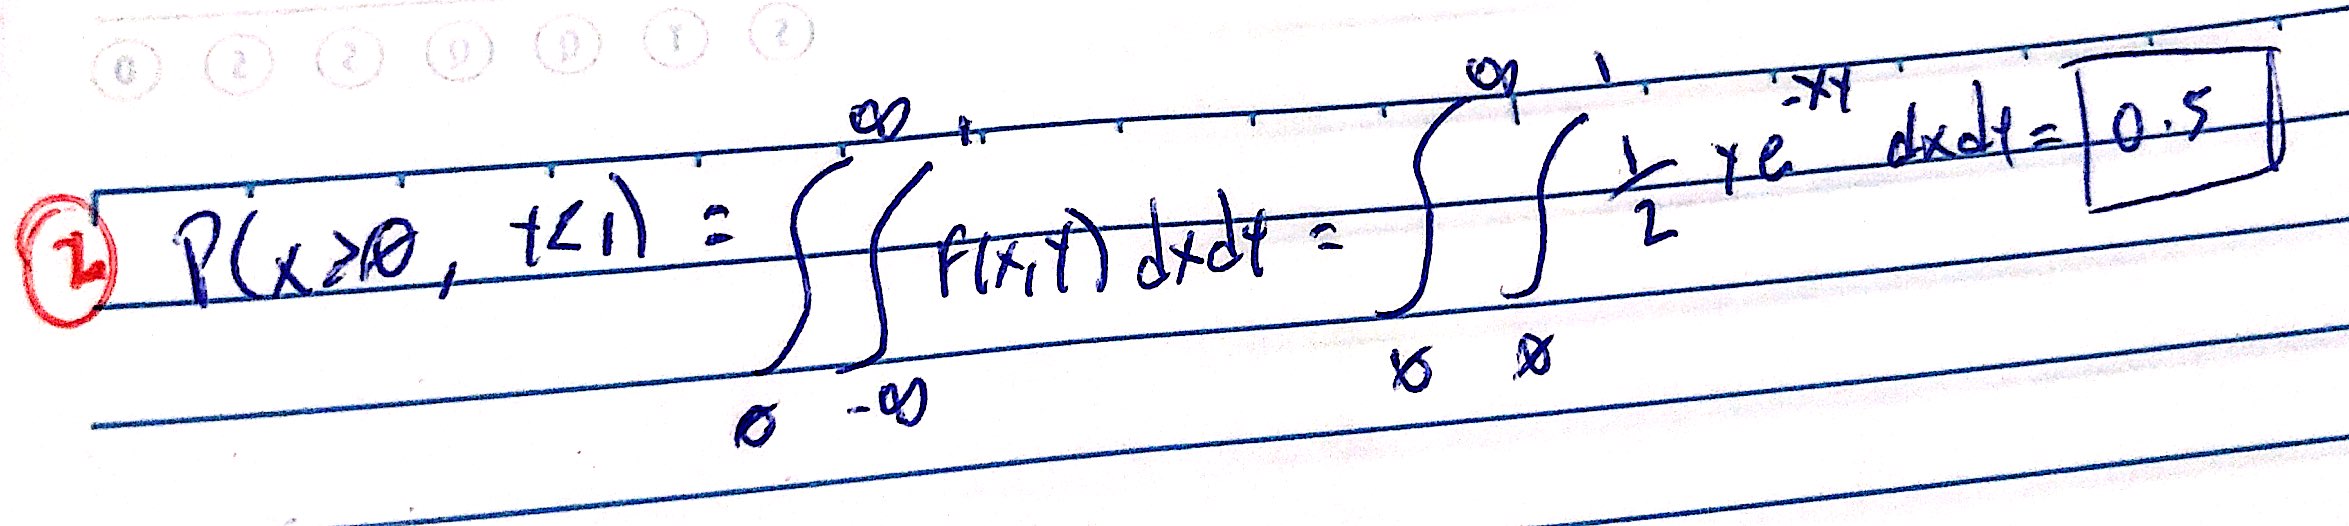 ② P(x>0, Y<1) = ∫_0^∞ ∫_{-∞}^1 f(x,Y) dxdY = ∫_0^∞ ∫_0^1 1/2 Ye^{-XY} dxdY = 0.5